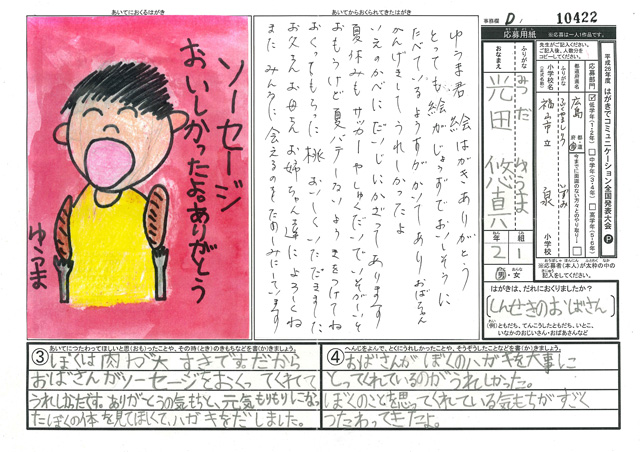 あいてにおくるはがき
ソーセージ
おいしかったよ。ありがとう
ゆうま
あいてからおくられてきたはがき
ゆうま君 絵はがきありがとう
とっても絵がじょうずでおいしそうに
たべているようすがかいてあり、おばちゃん
かんげきしてうれしかったよ
いえのかべにだいじにかざってあります
夏休みもサッカーや
おもうけど夏バテ
おくってもらった桃おいしくいただきました
お父さんお母さんお姉ちゃん達によろしくね
またみんなに会えるのをたのしみにしています
事務欄 D 10422
応募用紙 ※応募は一人1作品です。
平成26年度 はがきでコミュニケーション全国発表大会
ふりがな みつだ ゆうま
おなまえ 光田 悠真
年 2 組 1
男・女
応募部門
低学年(1・2年)
中学年(3・4年)
高学年(5・6年)
都道府県名 広島
ふりがな ふくやましりつ いずみ
小学校名 福山市立 泉 小学校
※応募者(本人)が太枠の中の
記入をしてください。
はがきは、だれにおくりましたか?
(しんせきのおばさん)
(例)ともだち、てんこうしたともだち、いとこ、
いなかのおじいさん・おばあさんなど
③ あいてにつたわってほしいと思(おも)ったことや、その時(とき)のきもちなどを書(か)きましょう。
ぼくは肉が大すきです。だから
おばさんがソーセージをおくってくれて
うれしかったです。ありがとうの気もちと、元気もりもりになっ
たぼくの体を見てほしくて、ハガキをだしました。
④ へんじをよんで、とくにうれしかったことや、そうぞうしたことなどを書(か)きましょう。
おばさんがぼくのハガキを大事に
とってくれているのがうれしかった。
ぼくのことを思ってくれている気もちがすごく
つたわってきたよ。